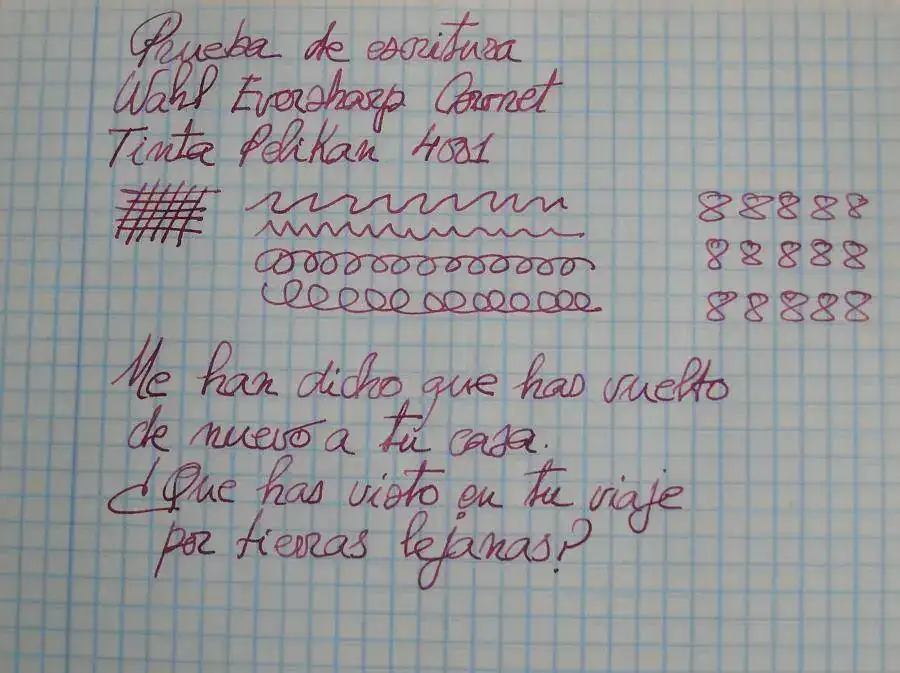 Prueba de escritura
Wahl Eversharp Coronet
Tinta Pelikan 4001
88888
88888
88888
Me han dicho que has vuelto
de nuevo a tu casa.
¿Que has visto en tu viaje
por tierras lejanas?